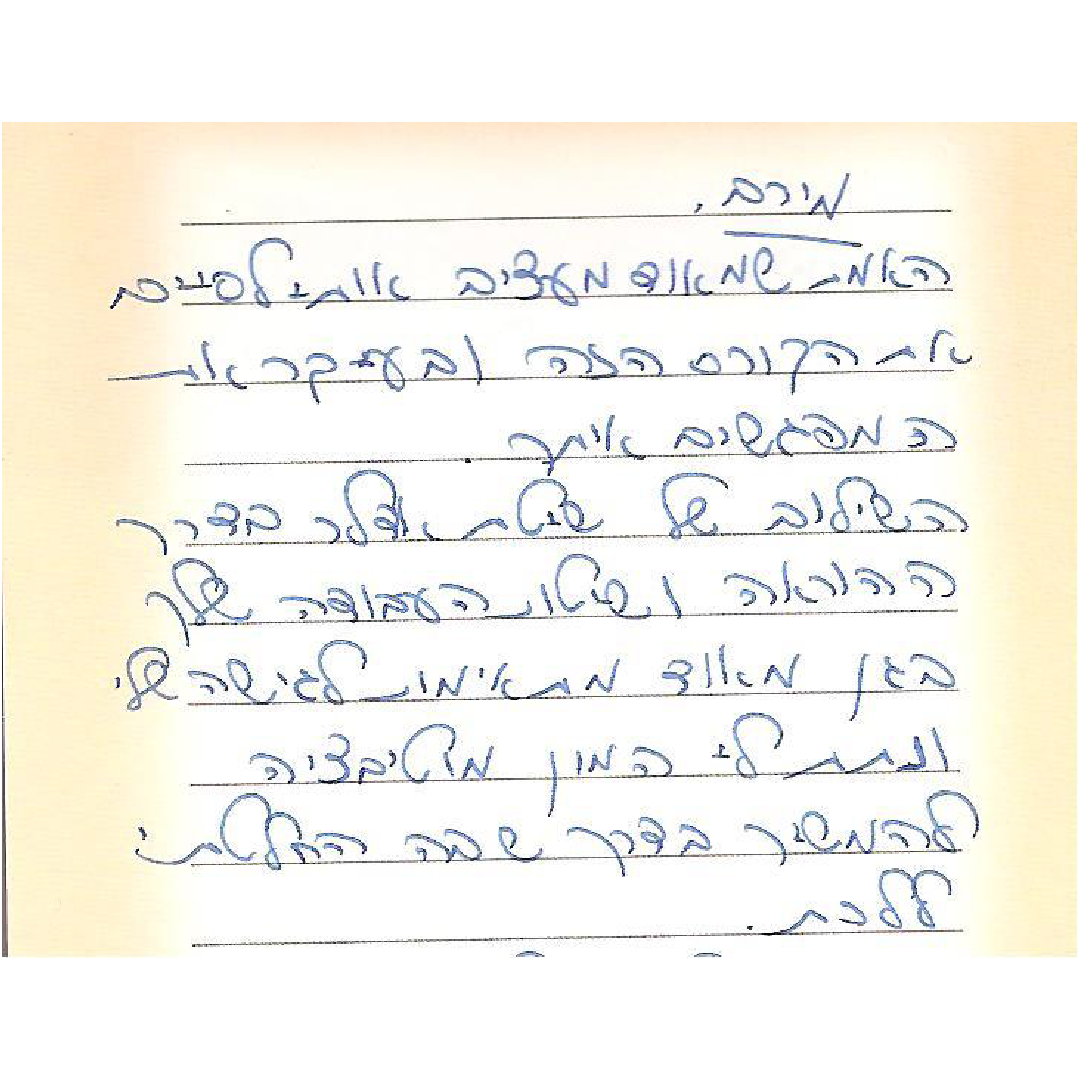 מירב,
האמת שמאוד מעציב אותי לסיים
את הקורס הזה ובעיקר את
המפגשים איתך.
השילוב של שיטת אדלר בדרך
ההוראה ושיטת העבודה שלך
בגן מאוד מתאימות לגישה שלי
ונתת לי המון מוטיבציה
להמשיך בדרך שבה החלטתי
ללכת.